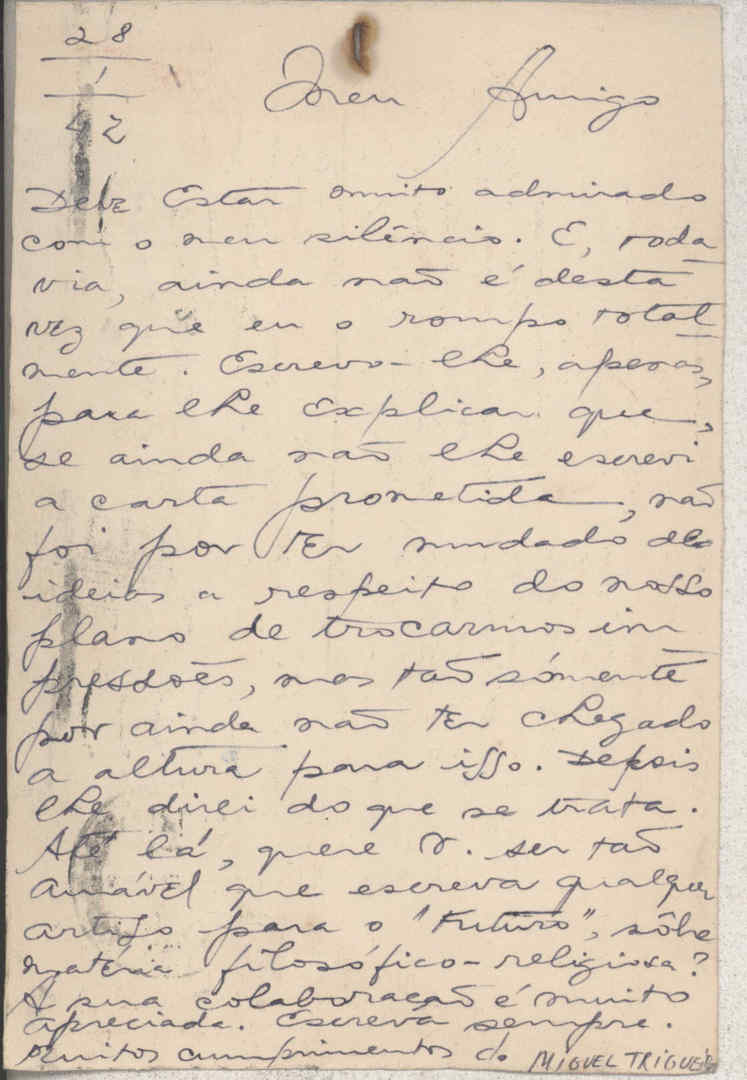 28
1
42
Meu Amigo
Deve Estar muito admirado
com o meu silêncio. E, toda-
via, ainda não é desta
vez que eu o rompo total-
mente. Escrevo-lhe, apenas,
para lhe explicar que,
se ainda não lhe escrevi
a carta prometida, não
foi por ter mudado de
ideias a respeito do nosso
plano de trocarmos im-
pressões, mas tão sómente
por ainda não ter chegado
a altura para isso. Depois
lhe direi do que se trata.
Até lá, quere V. ser tão
amável que escreva qualquer
artigo para o "Futuro", sôbre
matéria filosófico-religiosa?
A sua colaboração é muito
apreciada. Escreva sempre.
Muitos cumprimentos do MIGUEL TRIGUEIROS